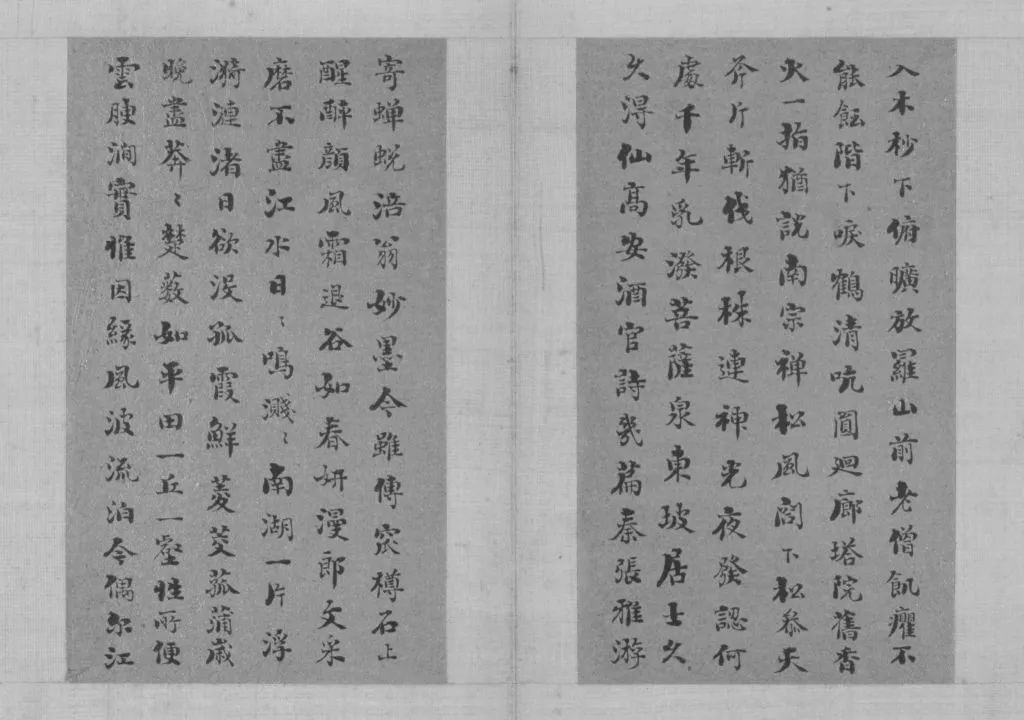 入木杪下俯曠放羅山前老僧飢癯不
能飯階下唳鶴清吭圓廻廊塔院舊香
火一指猶說南宗禅松風閣下松叅天
斧片斬伐根株連神光夜發認何
處千年乳潑菩薩泉東坡居士久
久淂仙高安酒官詩幾篇秦張雅游
寄蝉蛻涪翁妙墨今雖傳窊樽石上
醒醉顔風霜退谷如春妍漫郎文采
磨不盡江水日〻鳴濺〻南湖一片浮
漪漣渚日欲没孤霞鮮菱芡菰蒲歲
晚盡莽〻楚薮如平田一丘一壑性所便
雲腴澗實惟因緣風波流泊今偶尓江